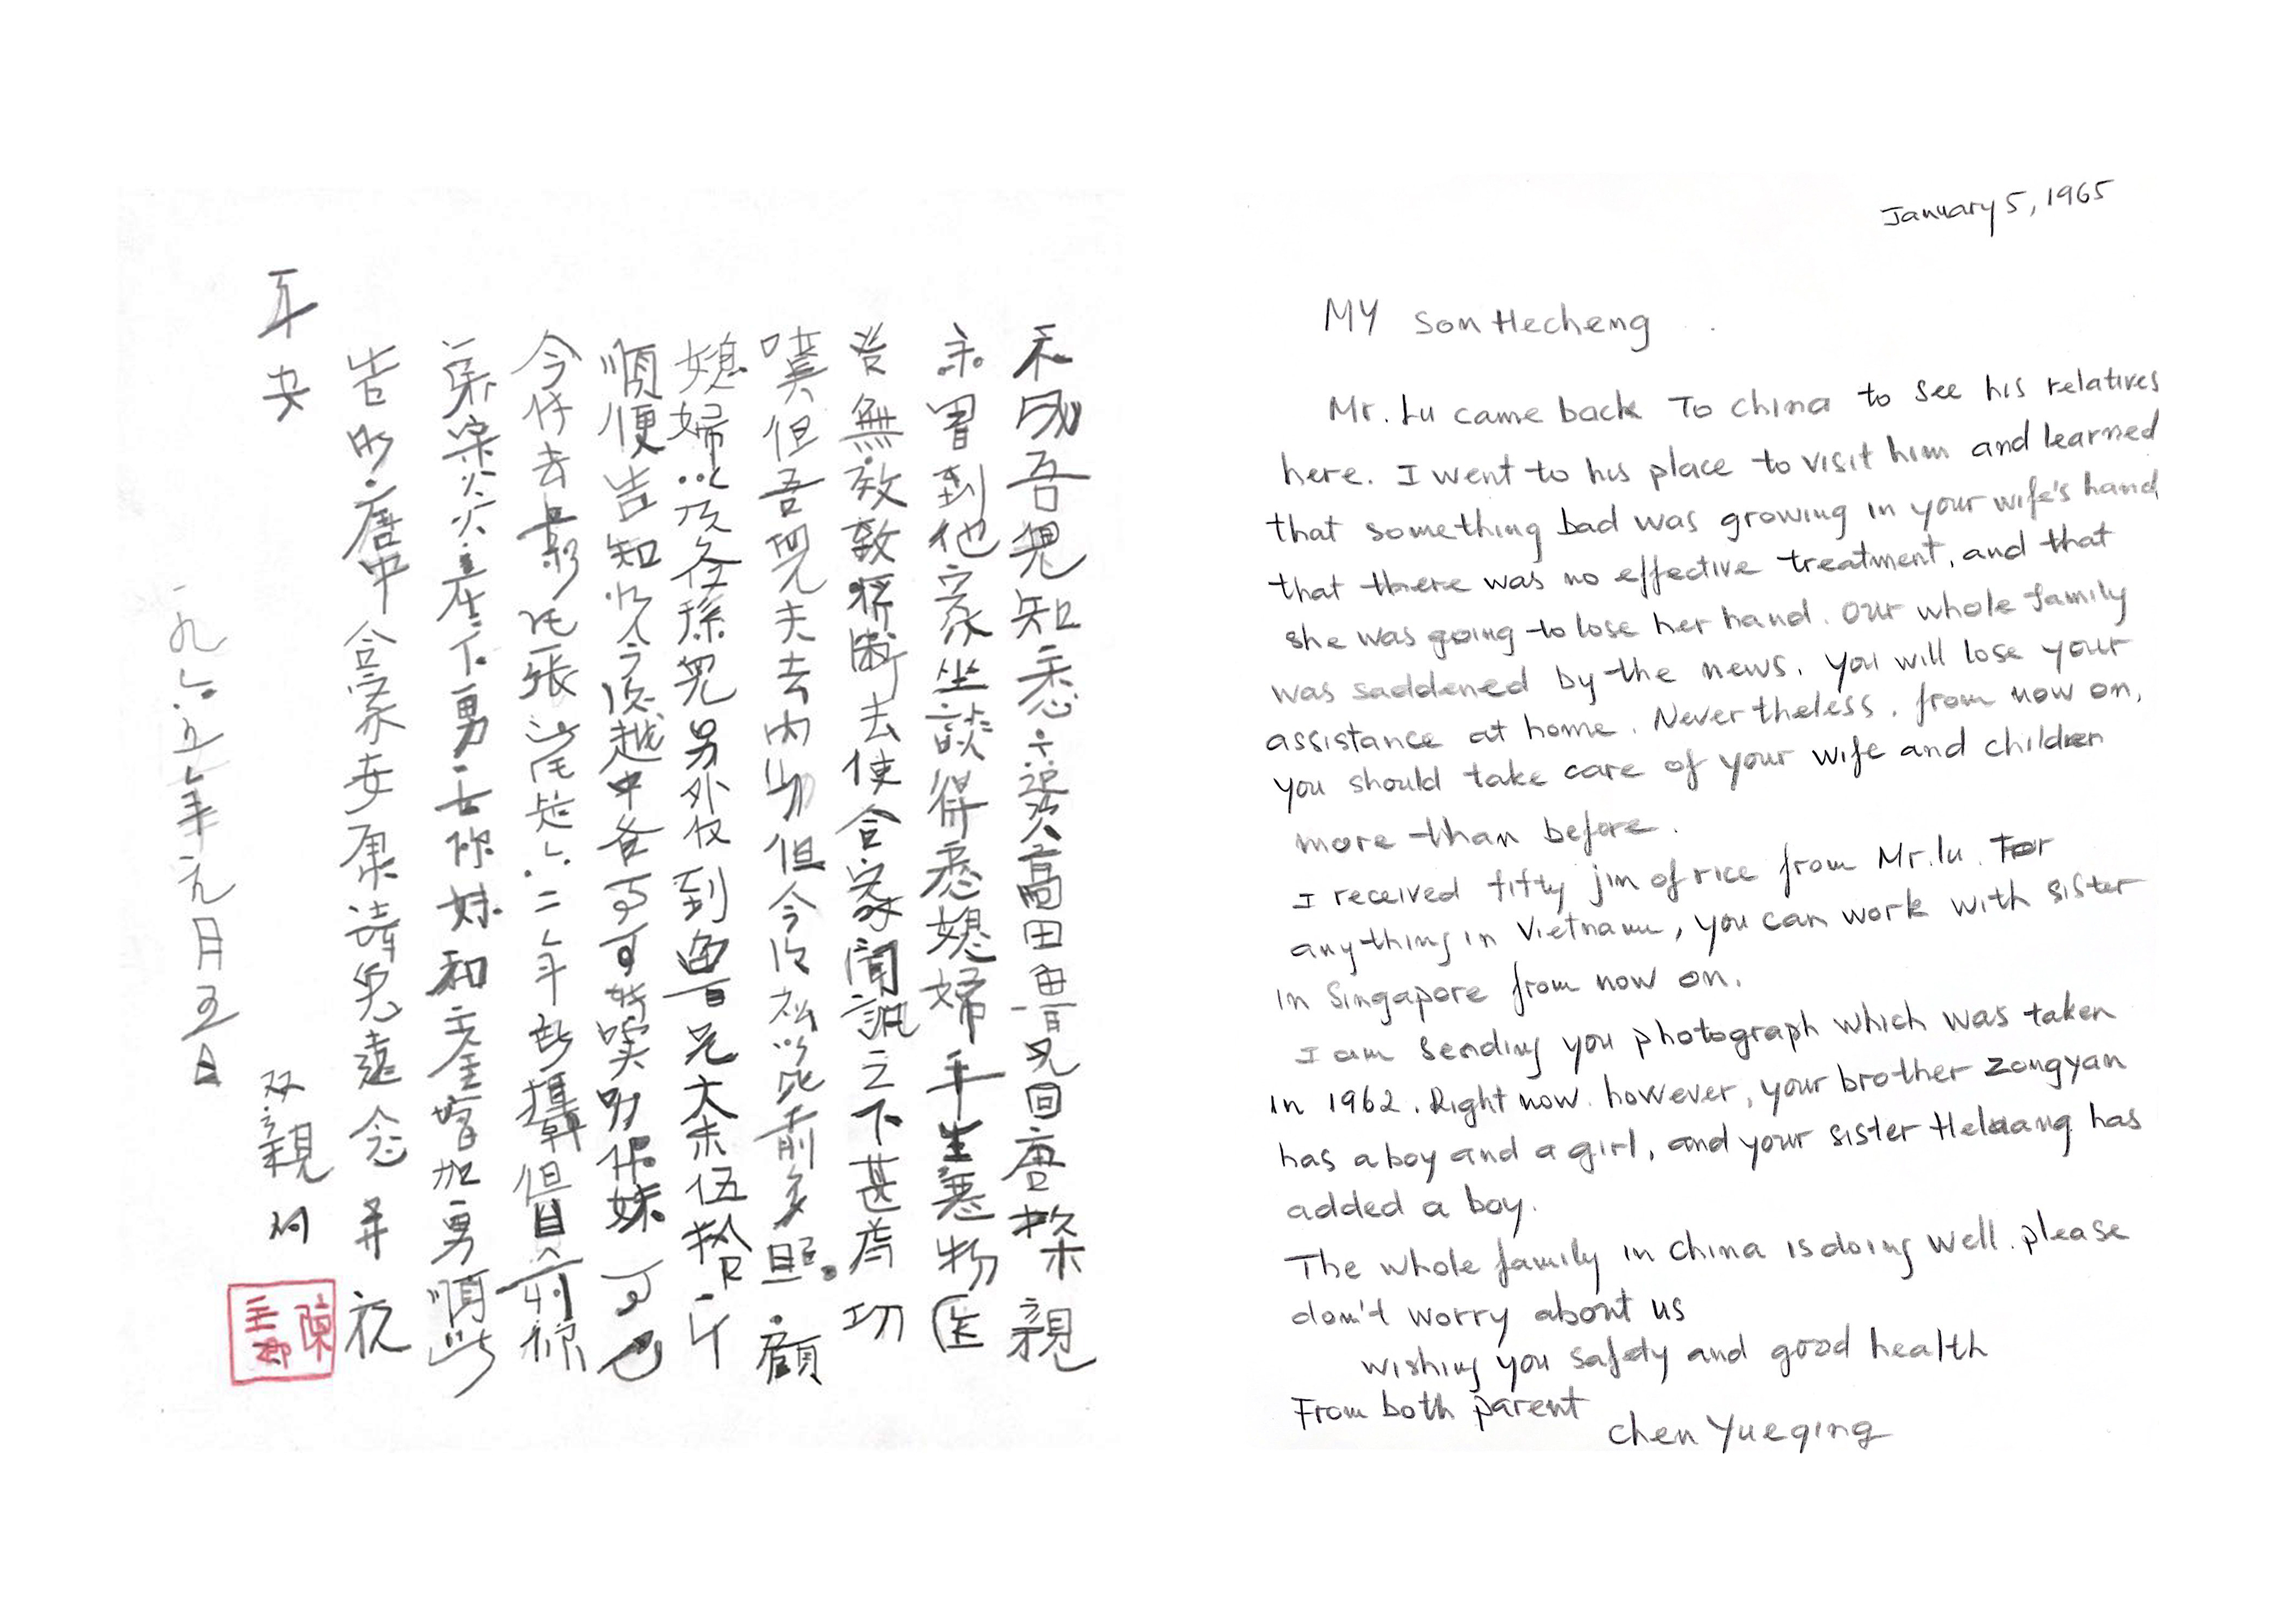 禾成吾兒知悉六逕資高田魯兄回唐探親
余冒到他家坐談得悉媳婦手生惡物医
治無效敦將斷去使合家聞訊之下甚為切
嘆但吾兒夫去內助但今後兹以死前多照顧
媳婦以及在孫兒另外收到魯兄大米伍拾斤
順便告知以今後越中各可
今付去影張此是六二年所攝但目前你
弟宗炎產下男一女你妹和 增加男順此
皆明唐中合家安康請免遠念并祝
平安
双親
陳
一九六五年元月五日
January 5, 1965
MY Son Hecheng
Mr. Lu came back To China to see his relatives
here. I went to his place to visit him and learned
that something bad was growing in your wife's hand
that there was no effective treatment, and that
she was going to lose her hand. Our whole family
was saddened by the news. You will lose your
assistance at home. Nevertheless, from now on,
you should take care of your wife and children
more than before.
I received fifty jin of rice from Mr. lu. For
anything in Vietnam, you can work with sister
in Singapore from now on.
I am sending you photograph which was taken
in 1962. Right now. however, your brother zongyan
has a boy and a girl, and your sister has
added a boy.
The whole family in China is doing well. please
don't worry about us
wishing you safety and good health
From both parent
Chen Yueqing